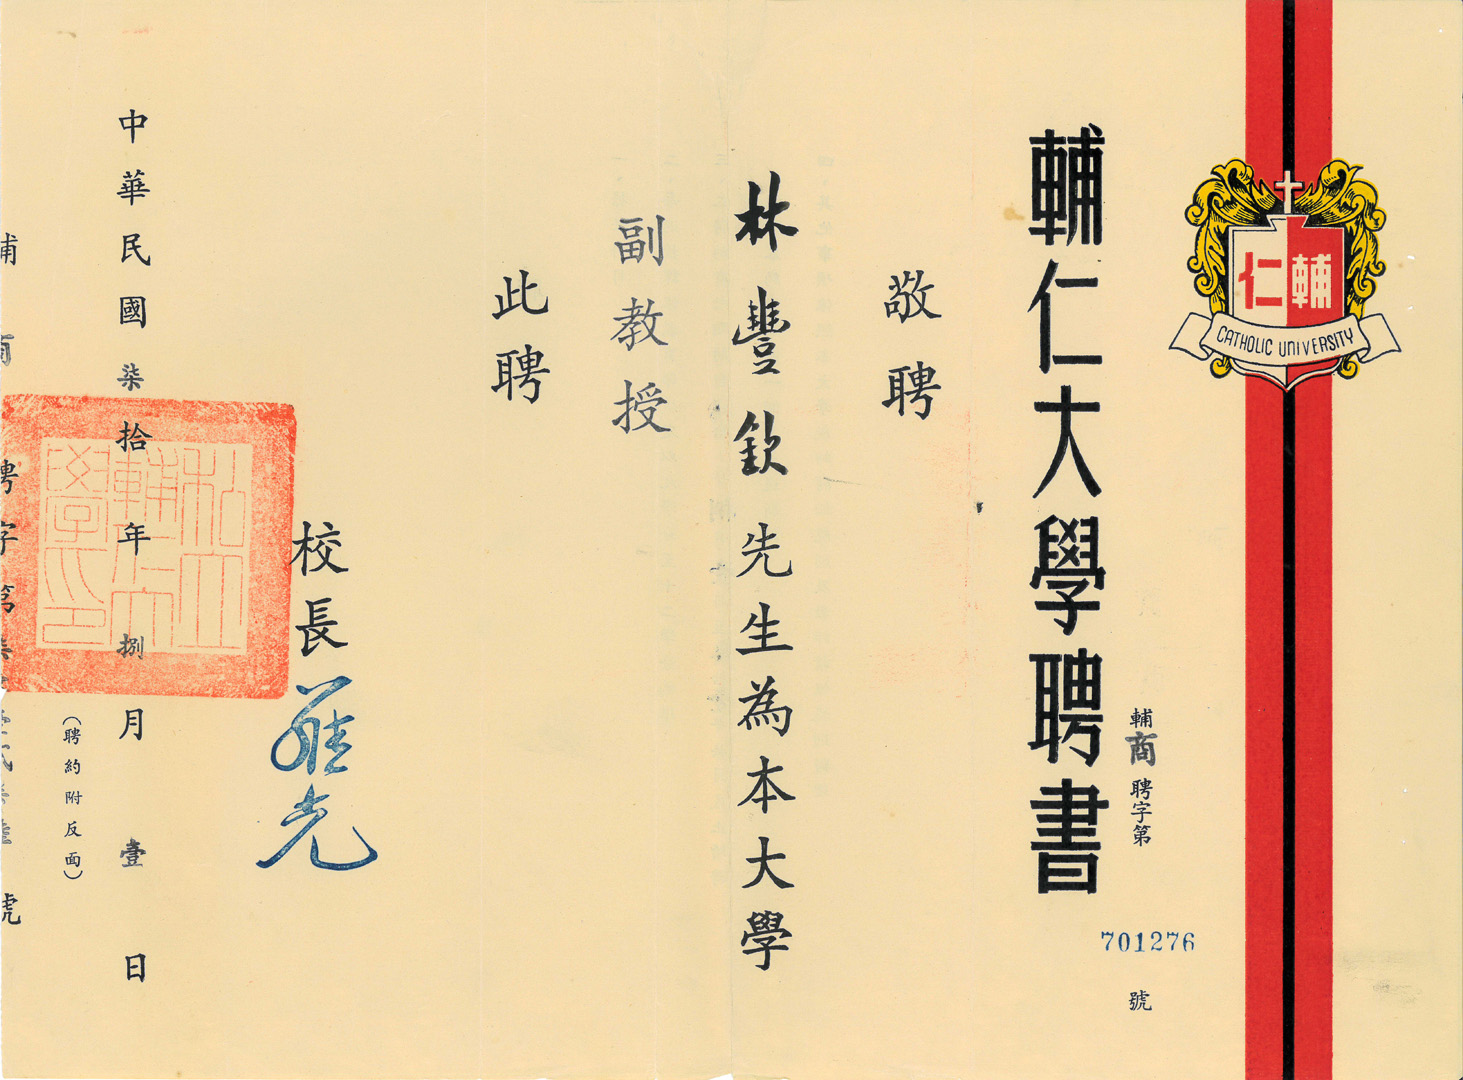 輔仁
CATHOLIC UNIVERSITY
輔仁大學聘書
輔商聘字第701276號
敬聘
林豐欽先生為本大學
副教授
此聘
校長羅光
中華民國柒拾年捌月壹日
私立
輔仁大
學之印
(聘約附反面)